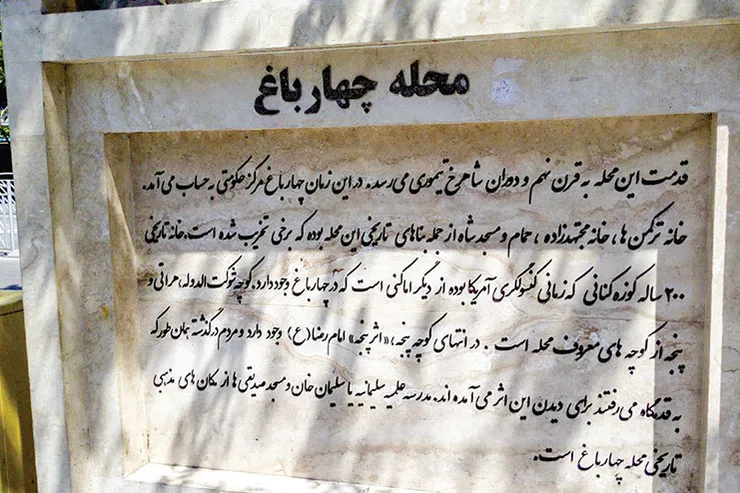 محله چهارباغ
قدمت این محله به قرن نهم و دوران شاهرخ تیموری می رسد. در این زمان چهارباغ مرکز حکومتی به حساب می آمد.
خانه ترکمن ها، خانه مجتهدزاده، حمام و مسجد شاه از جمله بناهای تاریخی این محله بوده که برخی تخریب شده است.خانه تاریخی
۲۰۰ ساله کوزه کنانی که زمانی کنسولگری آمریکا بوده از دیگر اماکنی است که در چهارباغ وجود دارد. کوچه شوکت الدوله، هراتی و
پنجه از کوچه های معروف محله است. در انتهای کوچه پنجه، «اثر پنجه» امام رضا(ع) وجود دارد و مردم در گذشته همان طور که
به قدمگاه می رفتند برای دیدن این اثر می آمده اند. مدرسه علمیه سلیمانیه یا سلیمان خان و مسجد صدیقی ها از مکان های مذهبی
تاریخی محله چهارباغ است.